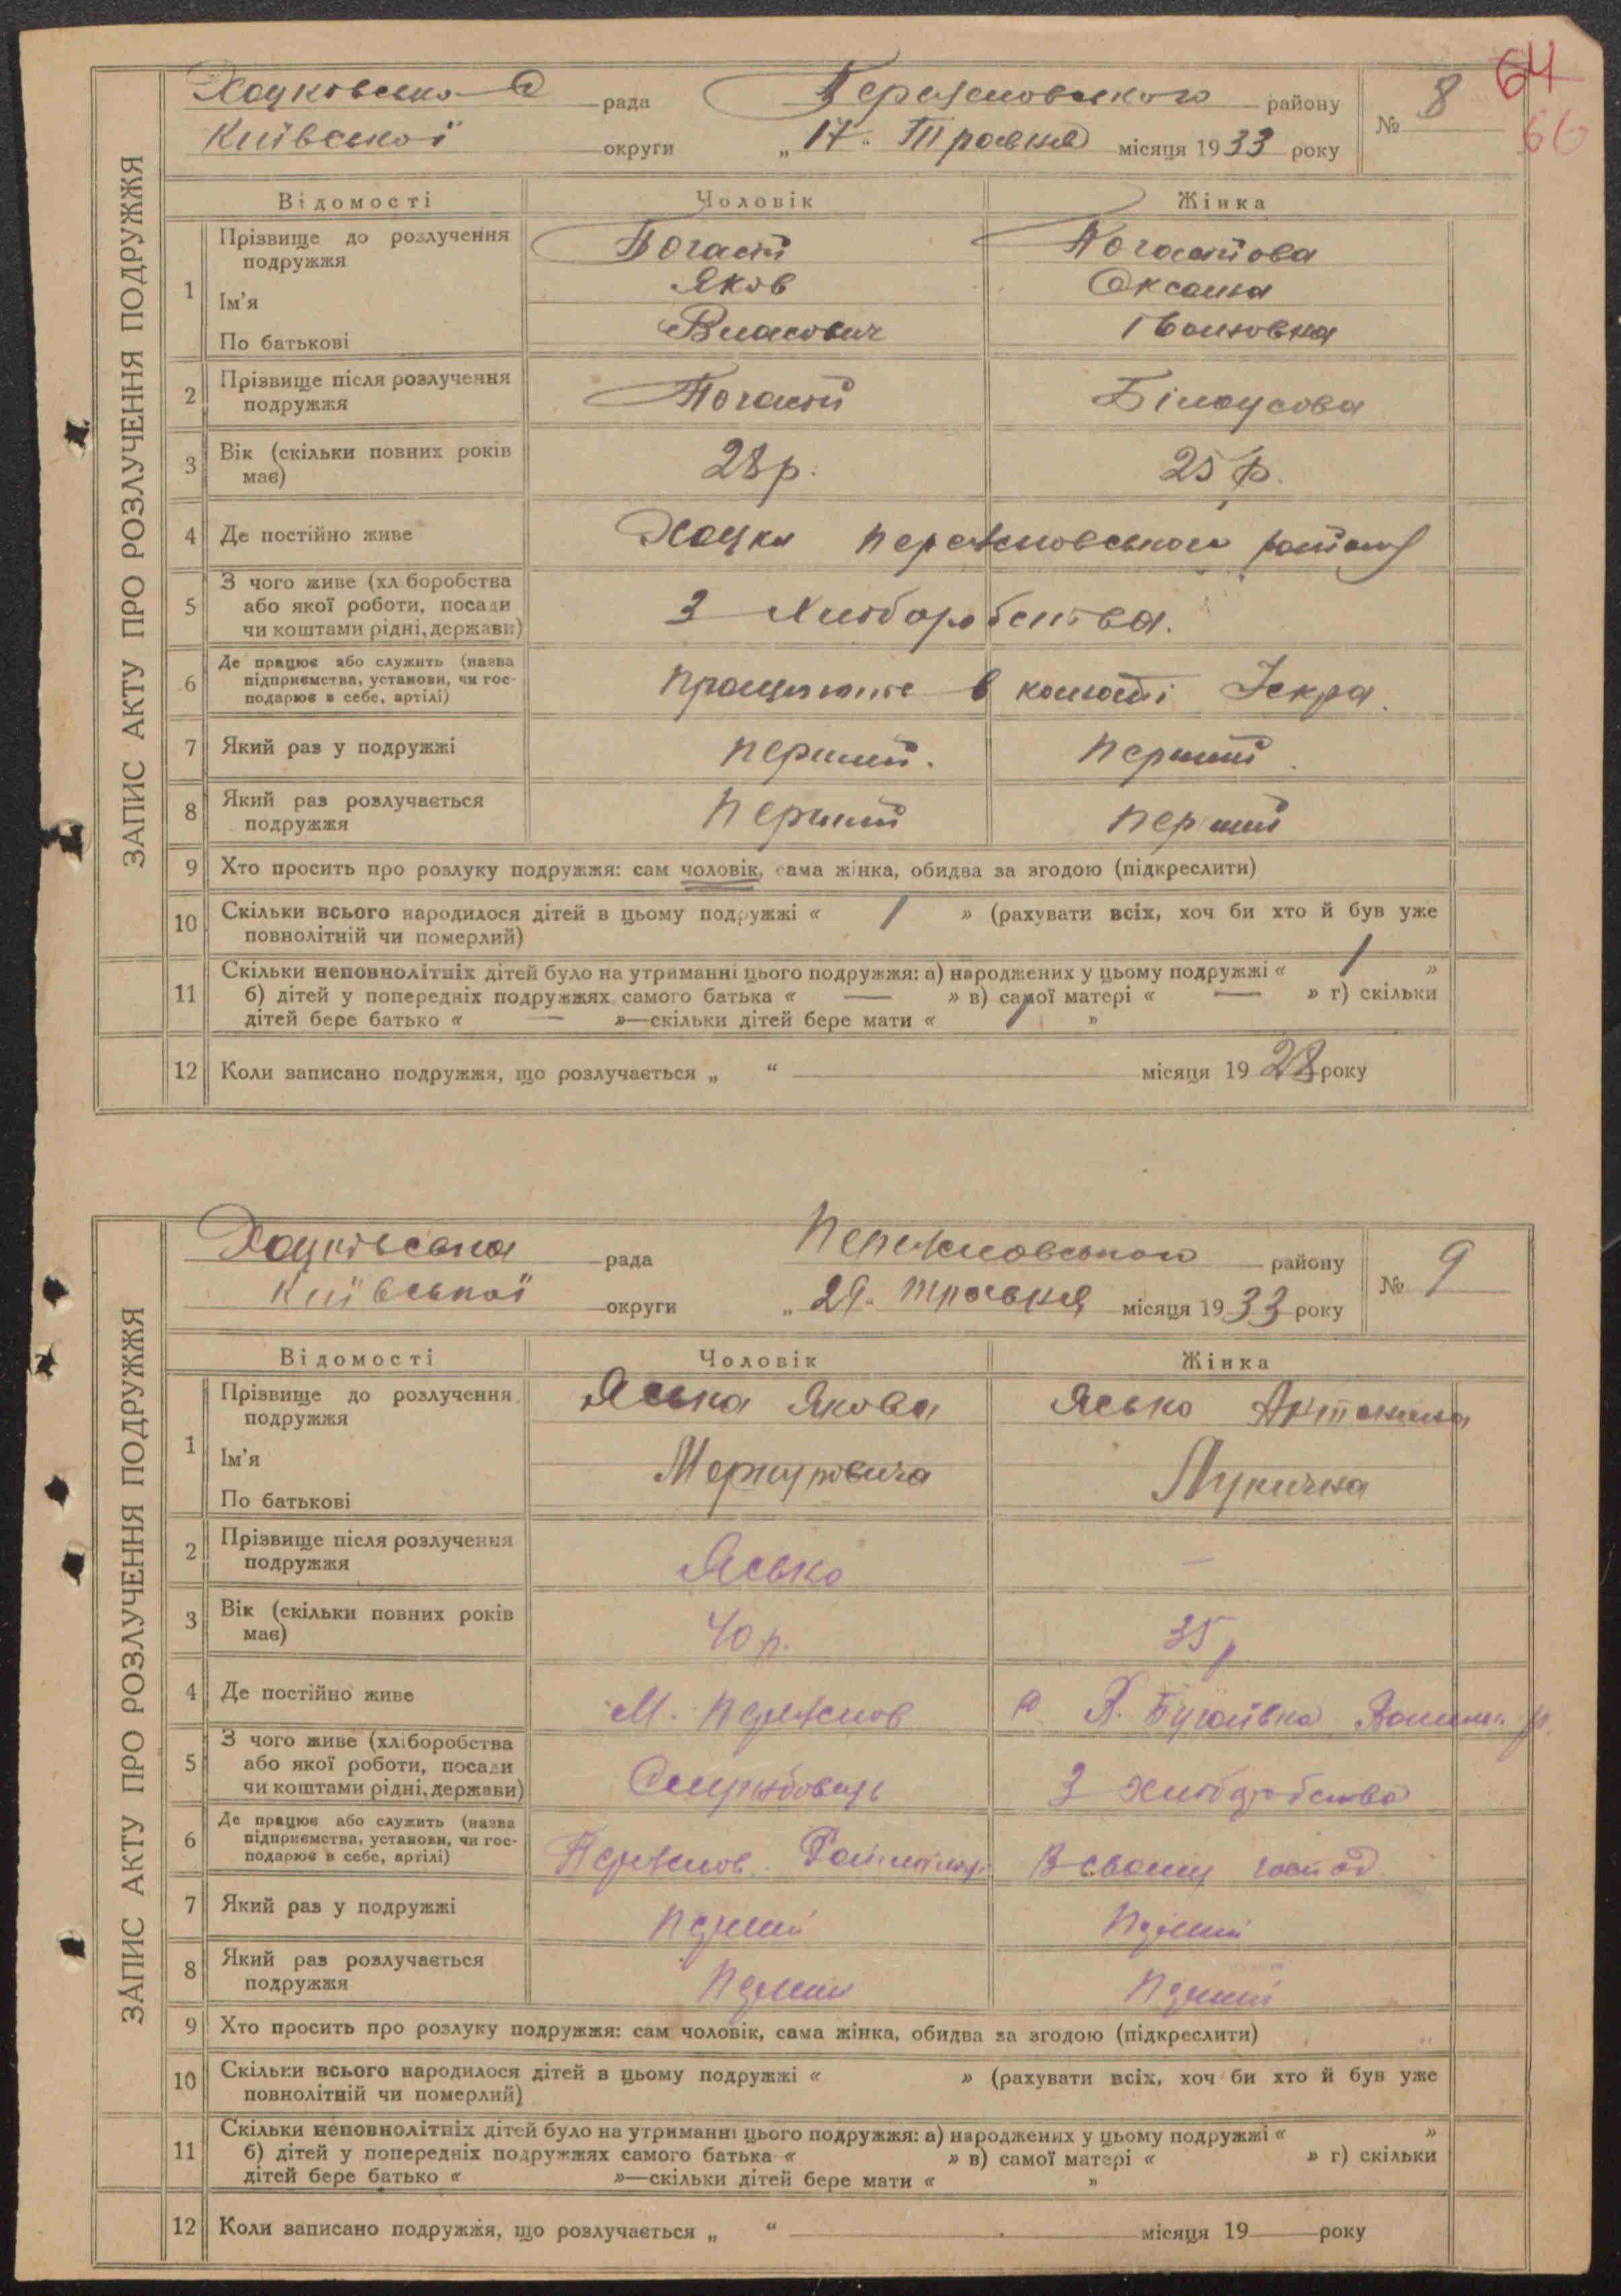 64
66
Хоцковська рада Переяславського району № 8
Київської округи „ 17 “ Травня місяця 1933 року
ЗАПИС АКТУ ПРО РОЗЛУЧЕННЯ ПОДРУЖЖЯ
Відомості Чоловік Жінка
1 Прізвище до розлучення подружжя
Ім'я Яков Оксана
По батькові Власович Івановна
2 Прізвище після розлучення подружжя Білоусова
3 Вік (скільки повних років має) 28 р. 25 р.
4 Де постійно живе Хоцки району
5 З чого живе (хліборобства або якої роботи, посади чи коштами рідні, держави) З хліборобства.
6 Де працює або служить (назва підприємства, установи, чи господарює в себе, артілі) в Іскра.
7 Який раз у подружжі перший. перший.
8 Який раз розлучається подружжя перший перший
9 Хто просить про розлуку подружжя: сам чоловік, сама жінка, обидва за згодою (підкреслити)
10 Скільки всього народилося дітей в цьому подружжі « 1 » (рахувати всіх, хоч би хто й був уже
повнолітній чи померлий)
11 Скільки неповнолітніх дітей було на утриманні цього подружжя: а) народжених у цьому подружжі « 1 »
б) дітей у попередніх подружжях самого батька « — » в) самої матері « — » г) скільки
дітей бере батько « — »—скільки дітей бере мати « 1 »
12 Коли записано подружжя, що розлучається „ “ місяця 1928 року
Хоцківська рада району № 9
Київської округи „ 29 “ травня місяця 1933 року
ЗАПИС АКТУ ПРО РОЗЛУЧЕННЯ ПОДРУЖЖЯ
Відомості Чоловік Жінка
1 Прізвище до розлучення подружжя Яська Якова Ясько Антонина
Ім'я Меркуровича Лукична
По батькові
2 Прізвище після розлучення подружжя Ясько —
3 Вік (скільки повних років має) 40 р. 35 р
4 Де постійно живе М.
5 З чого живе (хліборобства або якої роботи, посади чи коштами рідні, держави) Службовець З хліборобства
6 Де працює або служить (назва підприємства, установи, чи господарює в себе, артілі) В своему господ.
7 Який раз у подружжі Перший Перший
8 Який раз розлучається подружжя Перший Перший
9 Хто просить про розлуку подружжя: сам чоловік, сама жінка, обидва за згодою (підкреслити)
10 Скільки всього народилося дітей в цьому подружжі « » (рахувати всіх, хоч би хто й був уже
повнолітній чи померлий)
11 Скільки неповнолітніх дітей було на утриманні цього подружжя: а) народжених у цьому подружжі « »
б) дітей у попередніх подружжях самого батька « » в) самої матері « » г) скільки
дітей бере батько « »—скільки дітей бере мати « »
12 Коли записано подружжя, що розлучається „ “ місяця 19 року